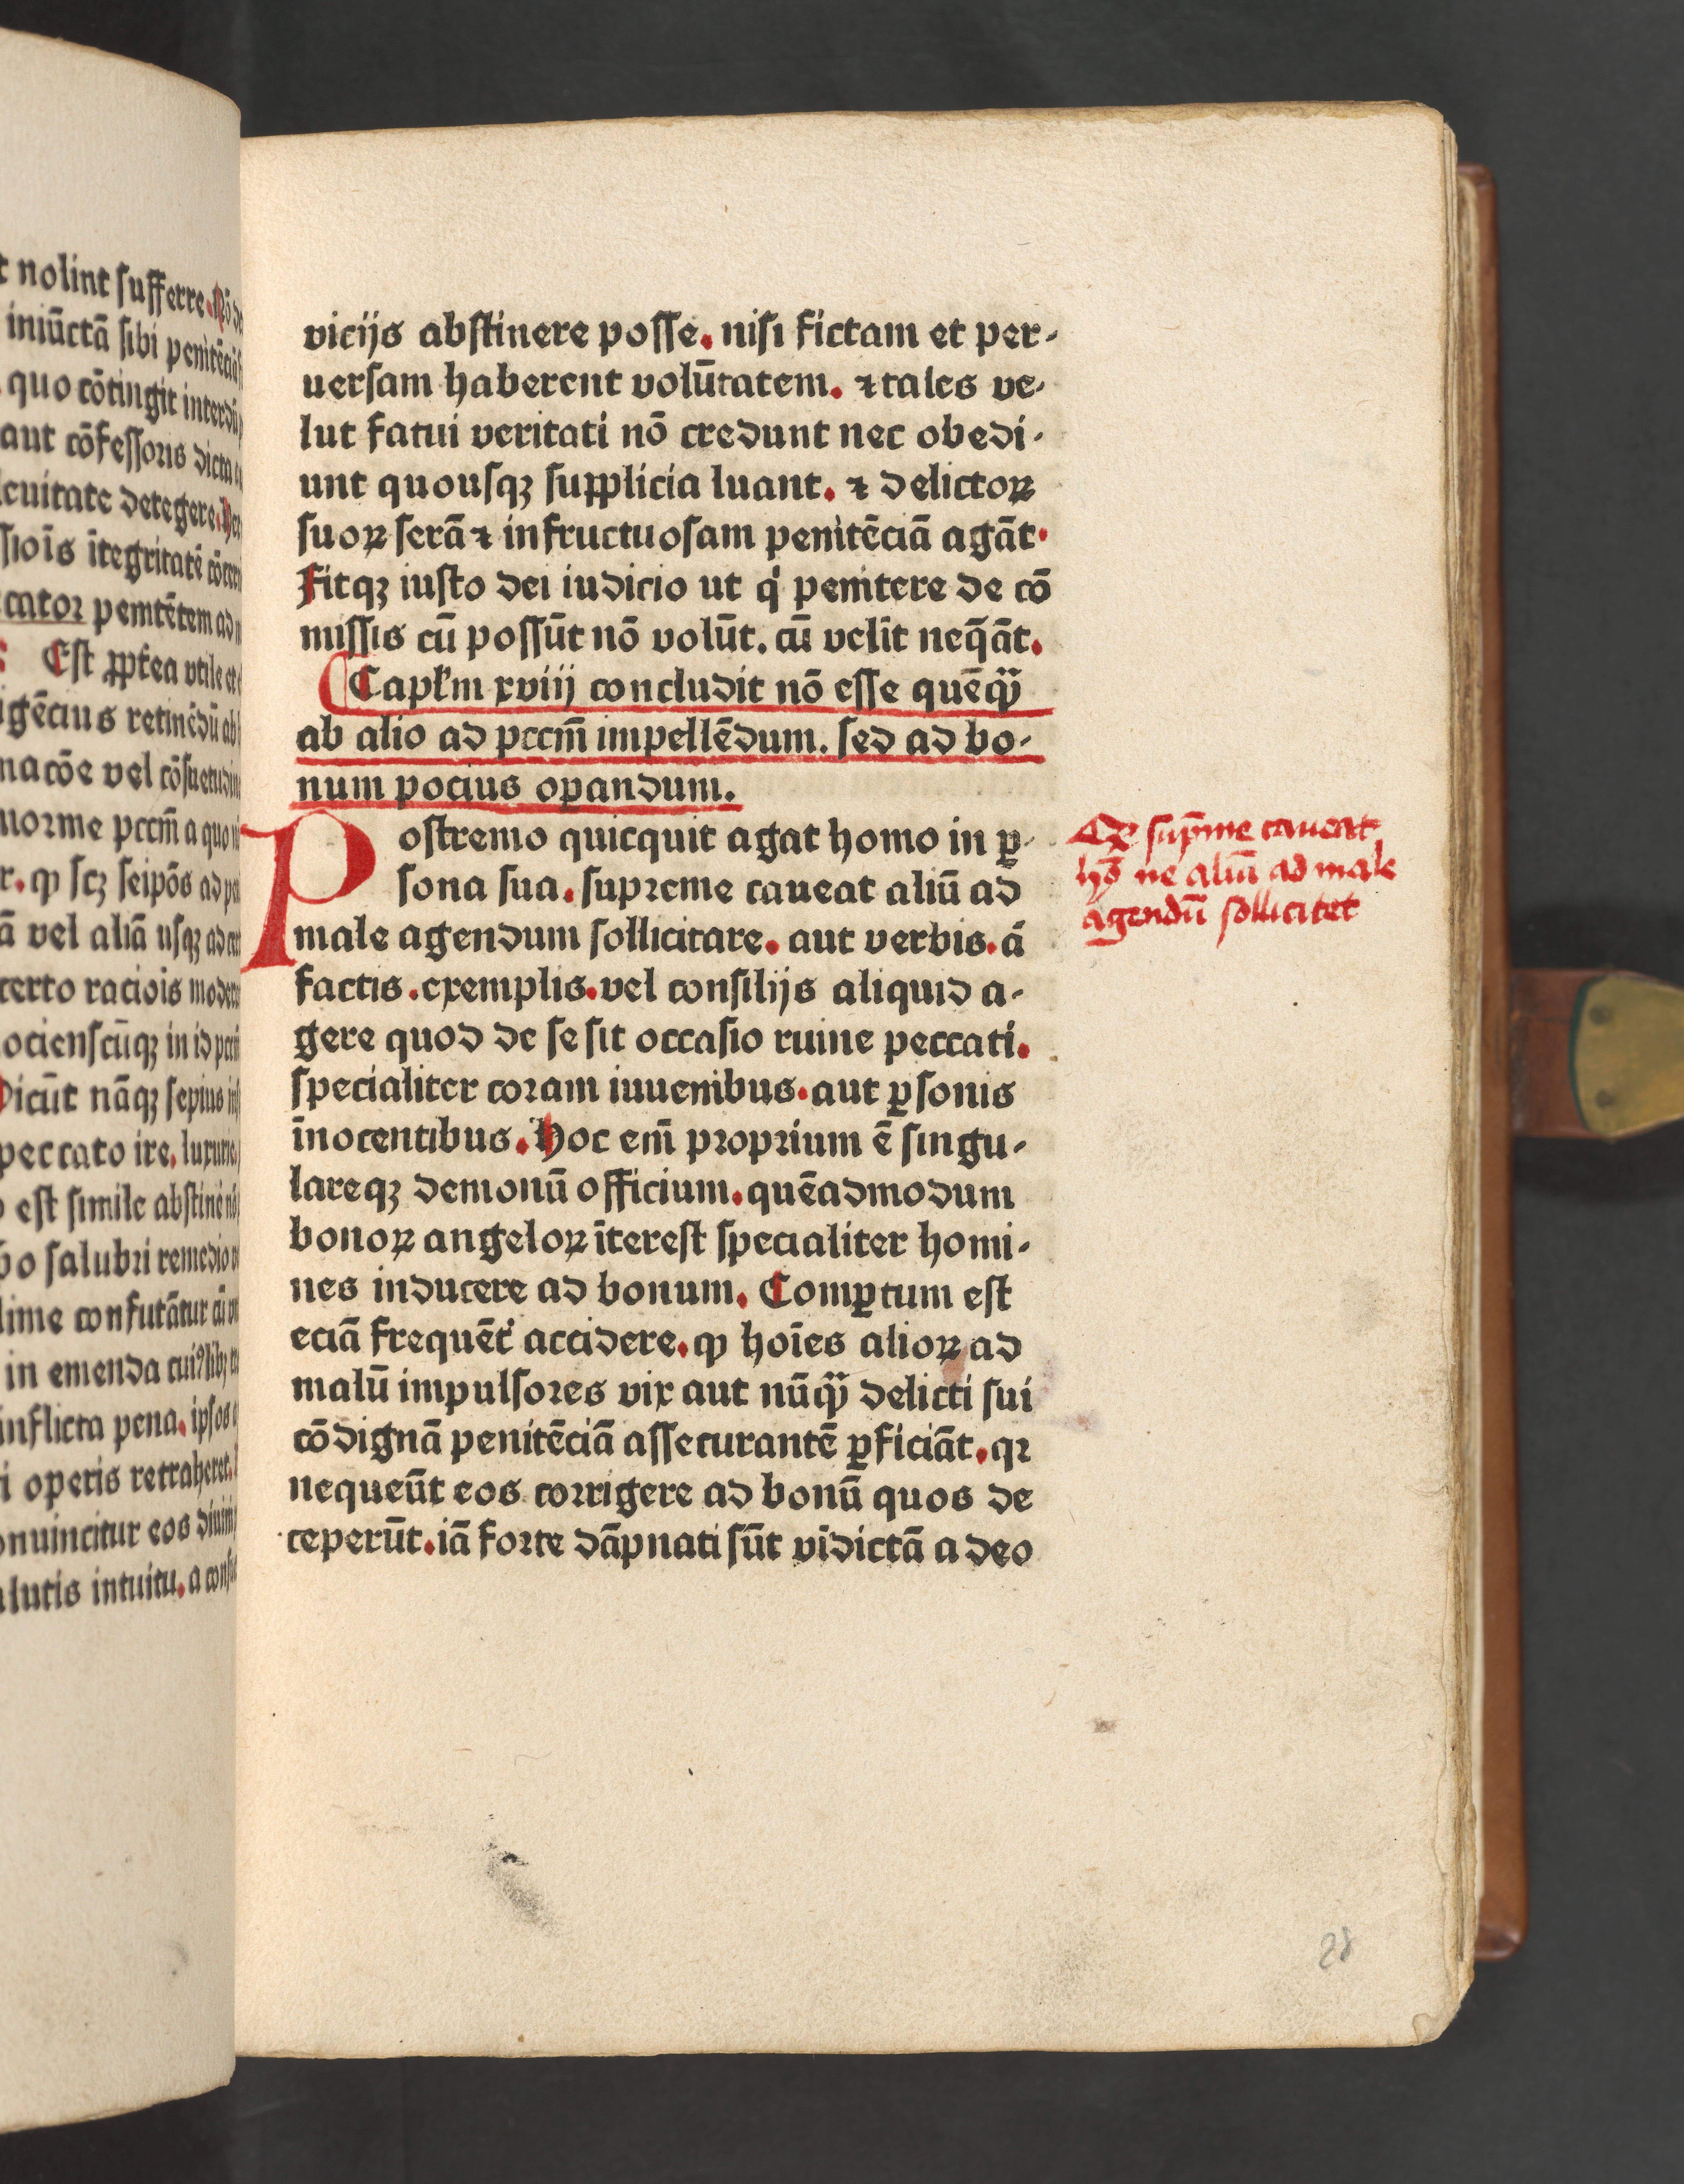 t nolint sufferre. Nō de
iniūctā sibi penitēciā
quo cōtingit interdū
aut cōfessoris dicta
leuitate detegere. Per
ssiōis ītegritatē
cator penitētem ad
Est ꝓpt̉ea vtile et
igēcius retinēdū ab
nacōe vel cōsuetudine
norme pccm̄ a quo
r. ꝙ scꝫ seipōs ad
ā vel aliā usqꝫ ad
certo raciōis
ociensūqꝫ in id
Dicūt nāqꝫ sepius
peccato ire, luxurie,
est simile abstinē
o salubri remedio
lime confutātur cū
in emenda
inflicta pena. ipsos
i operis retraheret.
onuincitur eos
alutis intuitu. a
vicijs abſtinere poſſe. niſi fictam et per-
uerſam haberent volūtatem. ⁊ tales ve-
lut fatui veritati nō credunt nec obedi-
unt quouſqꝫ ſupplicia luant. ⁊ delictoꝝ
ſuoꝝ ſerā ⁊ infructuoſam penitēciā agāt.
Fitqꝫ iuſto dei iudicio ut qͥ penitere de cō
miſſis cū poſſūt nō volūt. cū velīt neq̄āt.
Capl̄m xviij concludit nō eſſe quēqᷓ
ab alio ad pccm̄ impellēdum. ſed ad bo-
num pocius oꝑandum.
Poſtremo quicquit agat homo in ꝑ-
ſona ſua. ſupreme caueat aliū ad
male agendum ſollicitare. aut verbis. ā
factis. exemplis. vel conſilijs aliquid a-
gere quod de ſe ſit occaſio ruine peccati.
ſpecialiter coram iuuenibus. aut ꝑſonis
īnocentibus. Hoc em̄ proprium ē ſingu-
lareqꝫ demonū officium. quēadmodum
bonoꝝ angeloꝝ īterest ſpecialiter homi-
nes inducere ad bonum. Comꝑtum eſt
eciā frequēt̉ accidere. ꝙ hoīes alioꝝ ad
malū impulſores vix aut nūqᷓ delicti ſui
cōdignā penitēciā aſſecurantē ꝑficiāt. qꝛ
nequeūt eos corrigere ad bonū quos de
ceperūt. iā forte dāpnati ſūt vīdictā a deo
ſup̄me caueat
hō ne aliū ad male
agendū ſollicitet
28